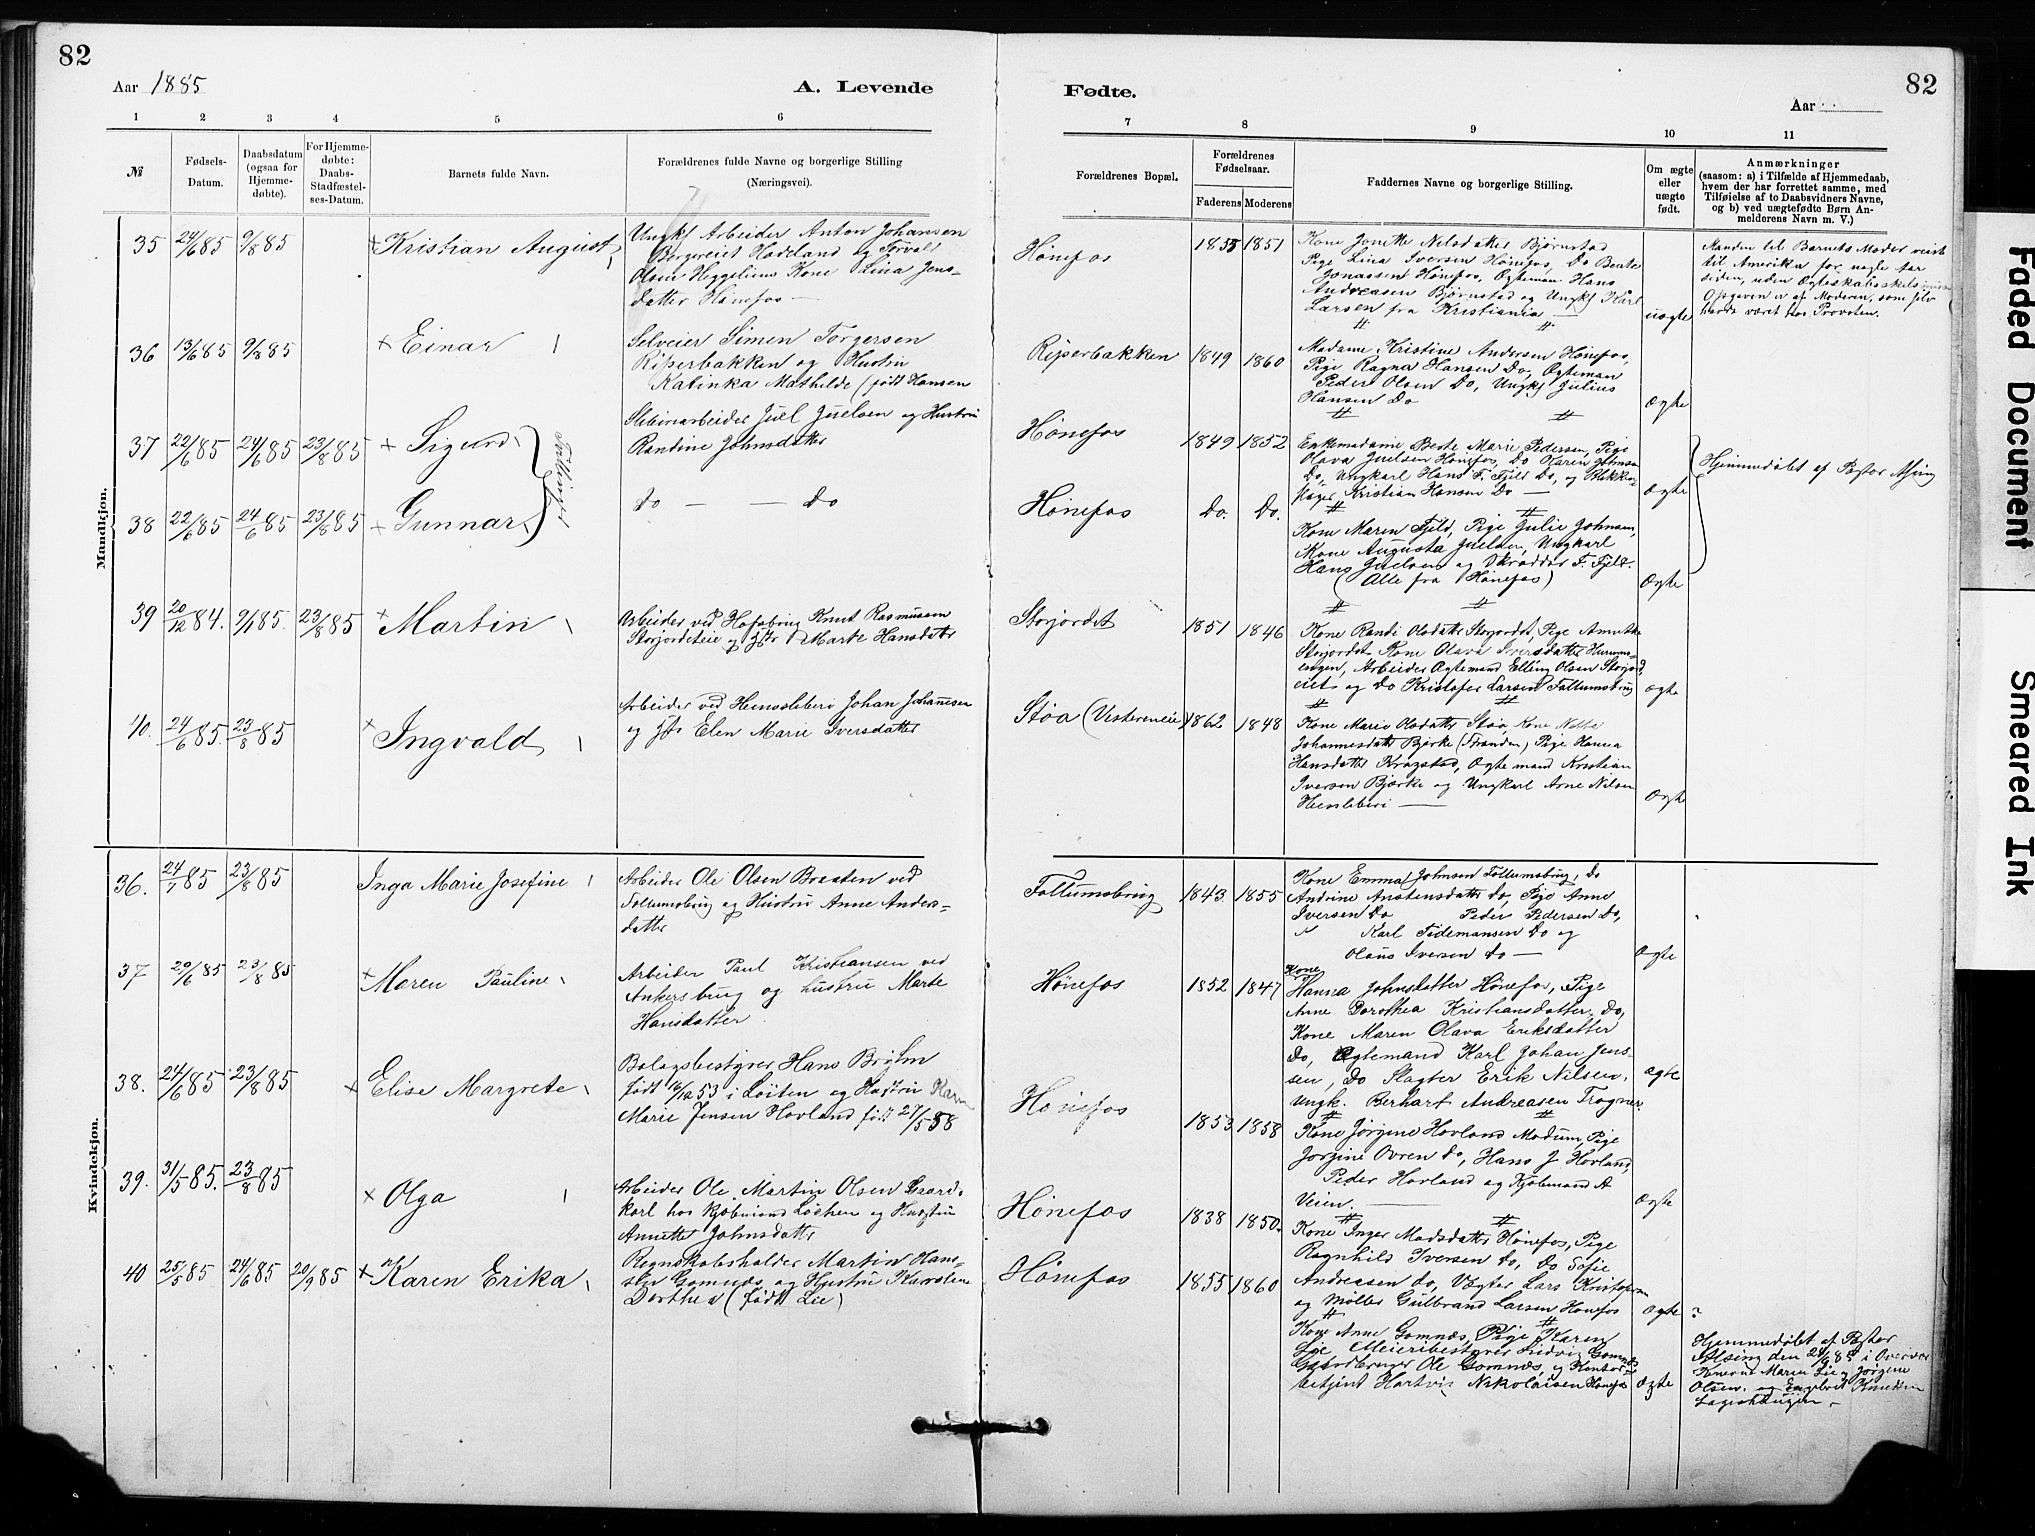 82
Aar 1885
A. Levende
1 2 3 4 5 6
№
Fødsels-
Datum.
Daabsdatum
(ogsaa for
Hjemme-
døbte).
For Hjemme-
døbte:
Daabs-
Stadfæstel-
ses-Datum.
Barnets fulde Navn.
Forældrenes fulde Navne og borgerlige Stilling
(Næringsvei).
Mandkjøn.
35 24/6 85 9/8 85 Kristian August
Ungkf Arbeider Anton Johansen
Hadeland og Torvald
Olsen Kone Lina Jens-
datter Hønefos —
36 13/6 85 9/8 85 Einar
Selveier Simen Torgersen
Riperbakken og Hustru
Katinka Mathilde (født Hansen
37 22/6 85 24/6 85 23/8 85 Sigurd
Tvillinger
Sliberiarbeider Juel Juelsen og Hustru
Randine Johnsdatter
38 22/6 85 24/6 85 23/8 85 Gunnar
Do — — Do
39 20/12 84. 9/1 85. 23/8 85 Martin
Arbeider ved Hofsbrug Knut Rasmussen
Storjordeteie og Marte Hansdatter
40. 24/6 85. 23/8 85 Ingvald
Arbeider ved Henssleberi Johan Johannesen
og Elen Marie Iversdatter
Kvindekjøn.
36. 24/7 85 23/8 85 Inga Marie Josefine
Arbeider Ole Olsen Braaten ved
Follumsbrug og Hustru Anne Anders-
datter
37 29/6 85 23/8 85 Maren Pauline
Arbeider Paul Kristiansen ved
Ankersbrug og hustru Marte
Hansdatter
38. 24/6 85 23/8 85 Elise Margrete
Bolagsbestyrer Hans Bryhn
født 16/12 53 i Løiten og Hustru Karen
Marie Jensen Hovland født 27/5 58
39. 31/5 85. 23/8 85 Olga
Arbeider Ole Martin Olsen Gaards-
karl hos Kjøbmand Løchen og Hustru
Annette Johnsdatter
40 25/5 85 24/6 85 20/9 85 Karen Erika
Regnskabsholder Martin Hans-
sen Gomnæs og Hustru Karoline
Dorthea (født Lie)
82
Fødte.
Aar
7 8 9 10 11
Forældrenes Bopæl.
Forældrenes
Fødselsaar.
Faderens Moderens
Faddernes Navne og borgerlige Stilling.
Om ægte
eller
uægte
født.
Anmærkninger
(saasom: a) i Tilfælde af Hjemmedaab,
hvem der har forrettet samme, med
Tilføielse af to Daabsvidners Navne,
og b) ved uægtefødte Børn An-
melderens Navn m. V.)
Hønefos 1855 1851
Kone Jonette Nilsdatter Bjørnstad
Pige Lina Iversen Hønefos, Do Beate
Jonassen Hønefos, Ægteman Hans
Andreasen Bjørnstad og Ungkf Karl
Larsen fra Kristiania —
uægte
Manden til Barnets Moder reiste
til Amerika for nogle Aar
siden, uden Ægteskabsskilsmisse
Opgaven er af Moderen, som selv
havde været hos Provsten.
Riperbakken 1849 1860
Madame Kristine Andersen Hønefos,
Pige Ragna Hansen Do, Ægteman
Peder Olsen Do, Ungkf Julius
Hansen Do
Ægte
Hønefos 1849 1852
Enkemadame Beate Marie Pedersen, Pige
Olava Juelsen Hønefos, Do Karen Johnsen
Do, Ungkarl Hans F. Fjeld Do, og Blikken-
slager Kristian Hansen Do —
Ægte
Hjemmedøbt af Pastor Alsing
Hønefos Do. Do.
Kone Maren Fjeld, Pige Julie Johnsen,
Kone Augusta Juelsen, Ungkarl
Hans Juelsen og Skrædder F. Fjeld.
(Alle fra Hønefos)
Ægte
Storjordet 1851 1846
Kone Randi Olsdatter Storjordet, Pige
Storjordet Kone Olava Iversdatter
engen, Arbeider Ægtemand Elling Olsen Storjord
eiet og Do Kristofer Larsen Follumsbrug
Ægte
Støa (Vestereneie) 1862 1848
Kone Marie Olsdatter Støa, Kone
Johannesdatter Bjerke (Stranden) Pige Hanna
Hansdatter Kragstad, Ægtemand Kristian
Iversen Bjerke og Ungkarl Arne Nilsen
Hensleberi —
Ægte
Follumsbrug 1843 1855
Kone Emma Johnsen Follumsbrug, Do
Andrine Anstensdatter Do, Pige Anne
Iversen Do Peder Pedersen Do,
Karl Tidemansen Do og
Olaus Iversen Do —
Ægte
Hønefos 1852 1847
Kone
Hanna Johnsdatter Hønefos, Pige
Anne Dorothea Kristiansdatter Do,
Kone Maren Olava Eriksdatter
Do, Ægtemand Karl Johan Jens-
sen, Do Slagter Erik Nilsen,
Ungk. Berhart Andreasen Trogner.
Ægte
Hønefos 1853 1858
Kone Jørgine Hovland Modum, Pige
Jørgine Ovren Do, Hans J Hovland,
Peder Hovland og Kjøbmand A
Veien.
Ægte
Hønefos 1838 1850.
Kone Inger Madsdatter Hønefos, Pige
Ragnhild Iversen Do, Do Sofie
Andreasen Do, Vægter Lars Kristofersen
og Møller Gulbrand Larsen Hønefos
Ægte ?
Hønefos 1855 1860
Kone Anne Gomnæs, Pige Karen
Lie Meieribestyrer Ludvig Gomnæs
Gaardbruger Ole Gomnæs og Kontor-
betjent Hartvig Nikolaisen Hønefos
Ægte
Hjemmedøbt af Pastor
Alsing den 24/6 85 i Overvær
Maren Lie og Jørgine
Olsen. og Engebret Knudsen
Faded Document
Smeared Ink